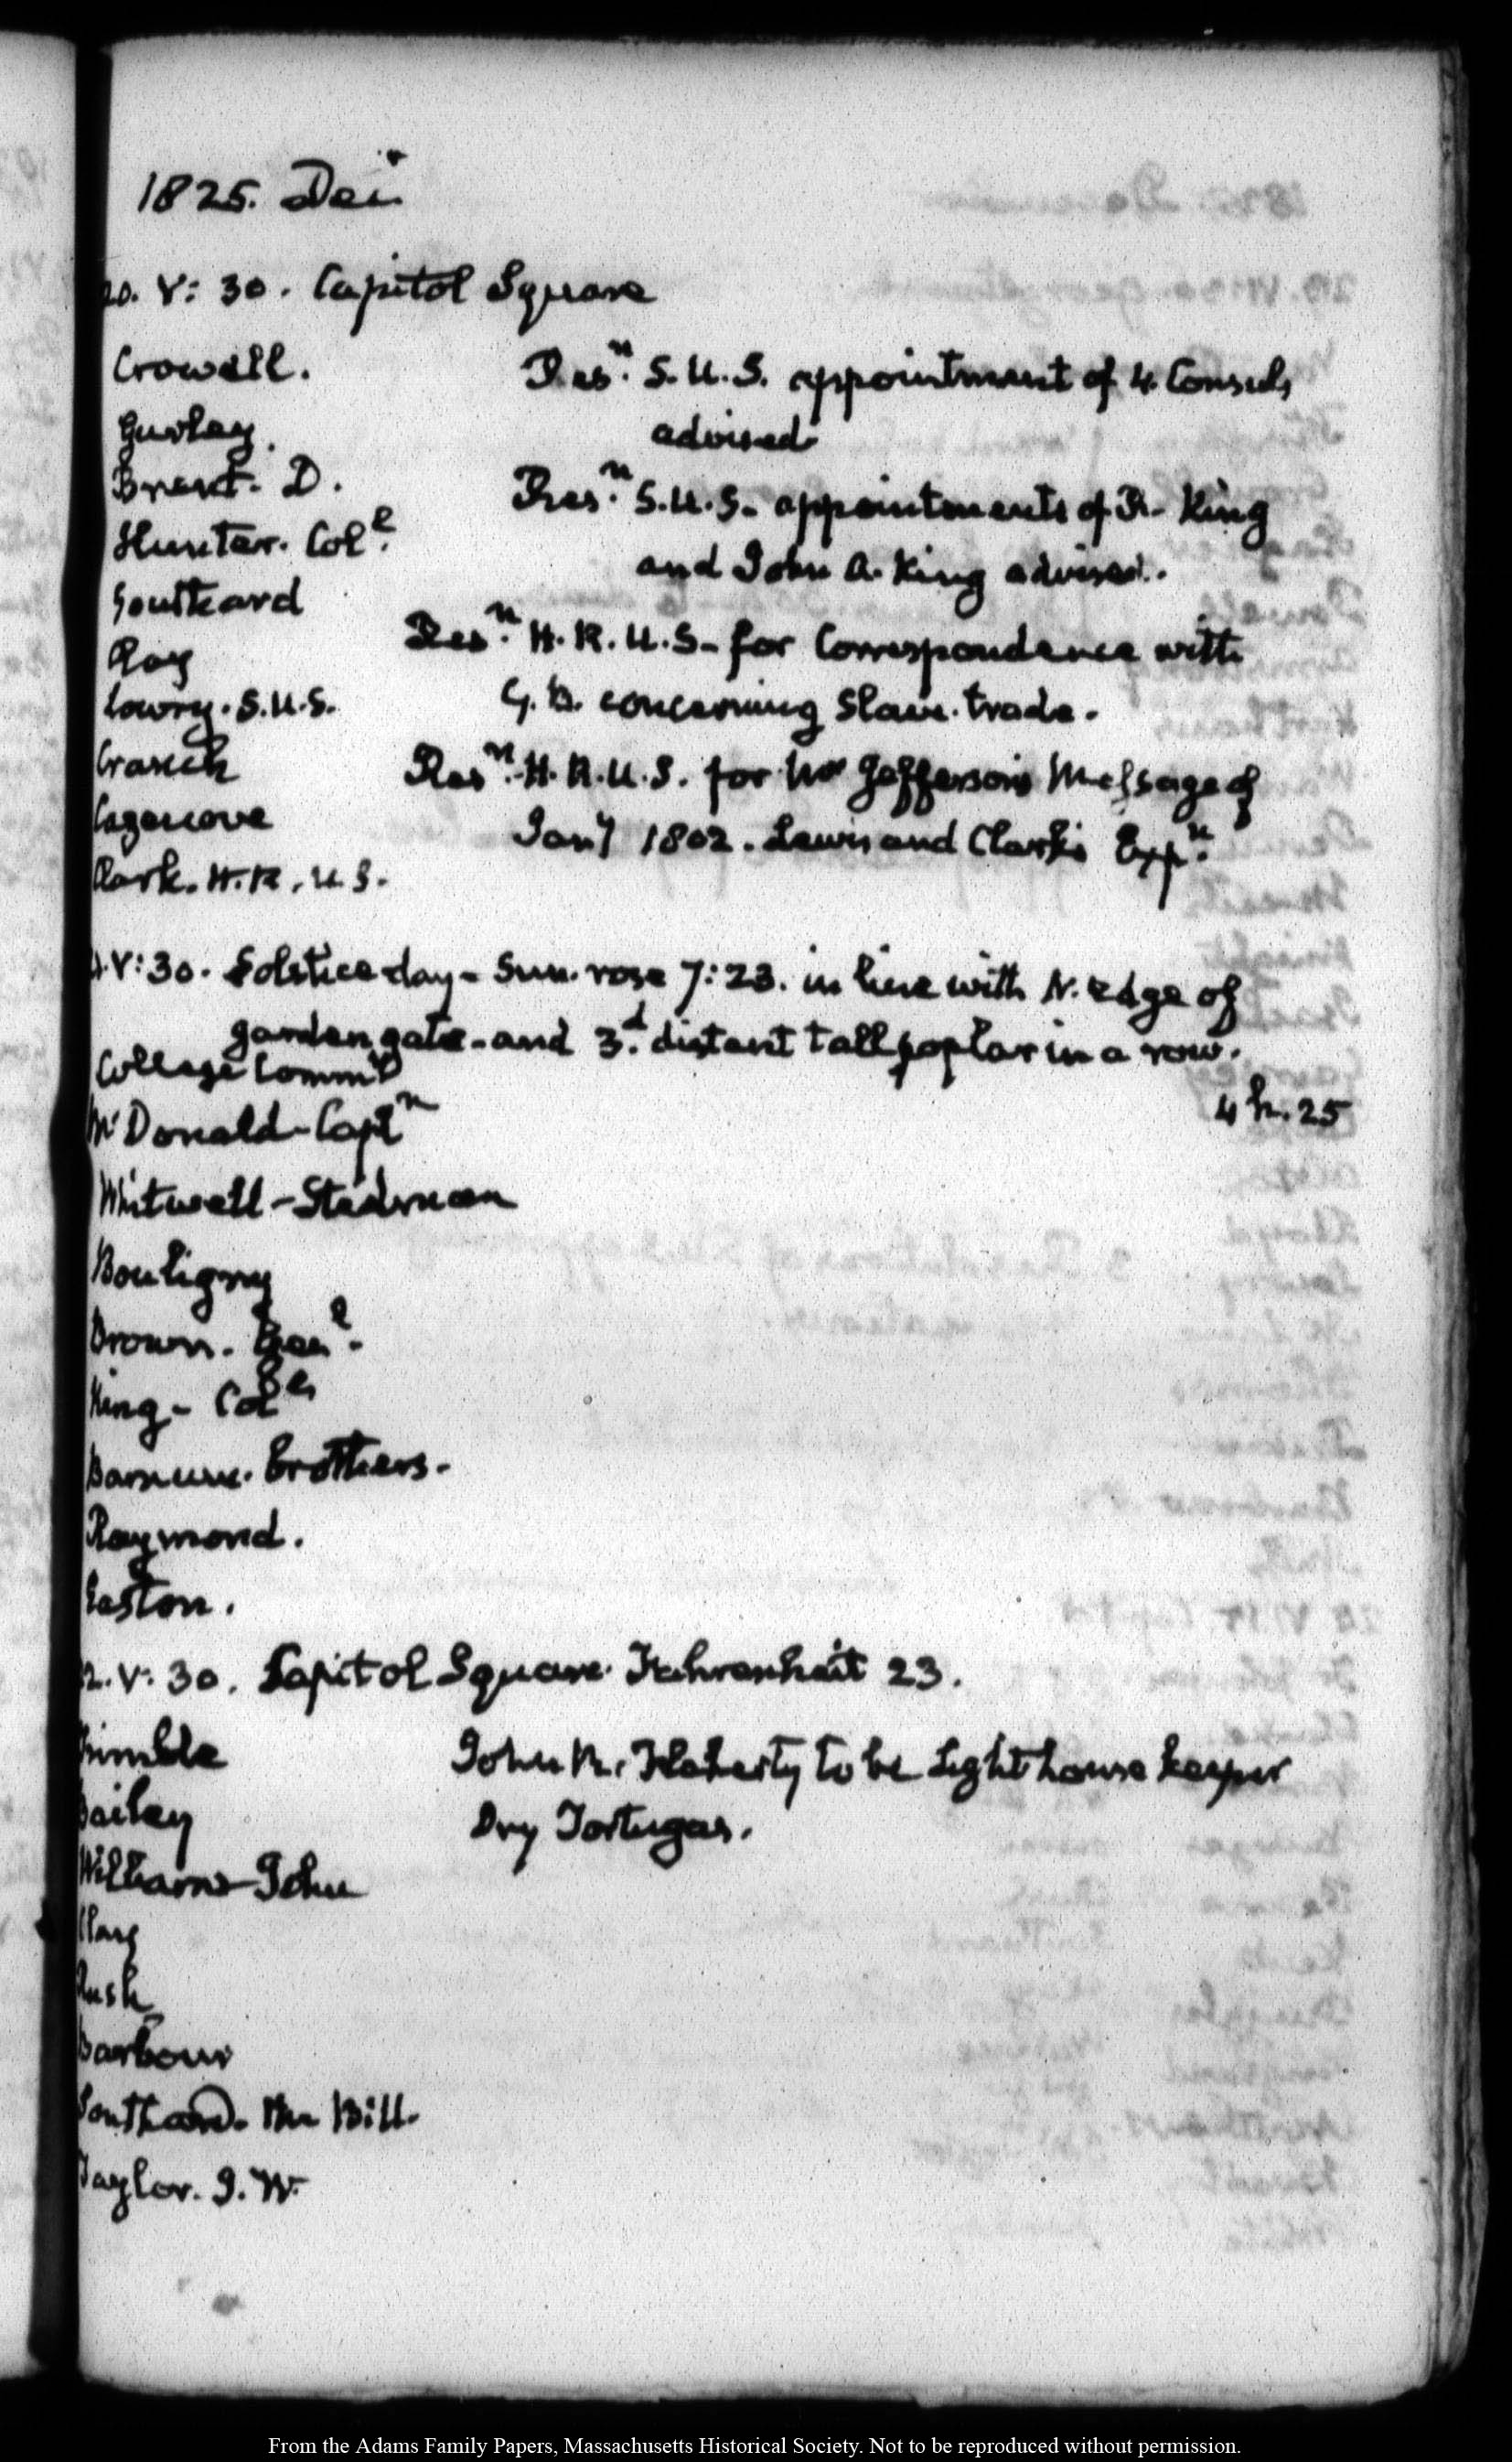 1825. Dec.r
20. V: 30. Capitol Square
Crowell.
Gurley.
Brent. D.
Hunter. Col.l
Southard
Ray
Lowry. S.U.S.
Cranch
Cazenove
Clark. H.R. U.S.
Res.n S.U.S. appointment of 4 Consuls
advised
Res.n S.U.S. appointments of R. King
and John A. King advised.
Res.n H.R.U.S. for Correspondence with
G.B. concerning Slave trade.
Res.n H.R.U.S. for Mr Jefferson's Message of
Jan.y 1802. Lewis and Clark's Exp.n
21. V: 30. Solstice day - Sun rose 7:23. in line with N. edge of
garden gate - and 3.d distant tall poplar in a row.
4 h. 25
College Comm.ee
McDonald - Capt.n
Whitwell - Stedman
Bouligny
Brown. Gen.l
King - Col.
Barnum. Brothers.
Raymond.
Easton.
22. V: 30. Capitol Square. Fahrenheit 23.
Trimble
Bailey
Williams - John
Clay
Rush
Barbour
Southard. Mr Bill.
Taylor. J. W.
John R. Flaherty to be Light house keeper
Dry Tortugas.
From the Adams Family Papers, Massachusetts Historical Society. Not to be reproduced without permission.